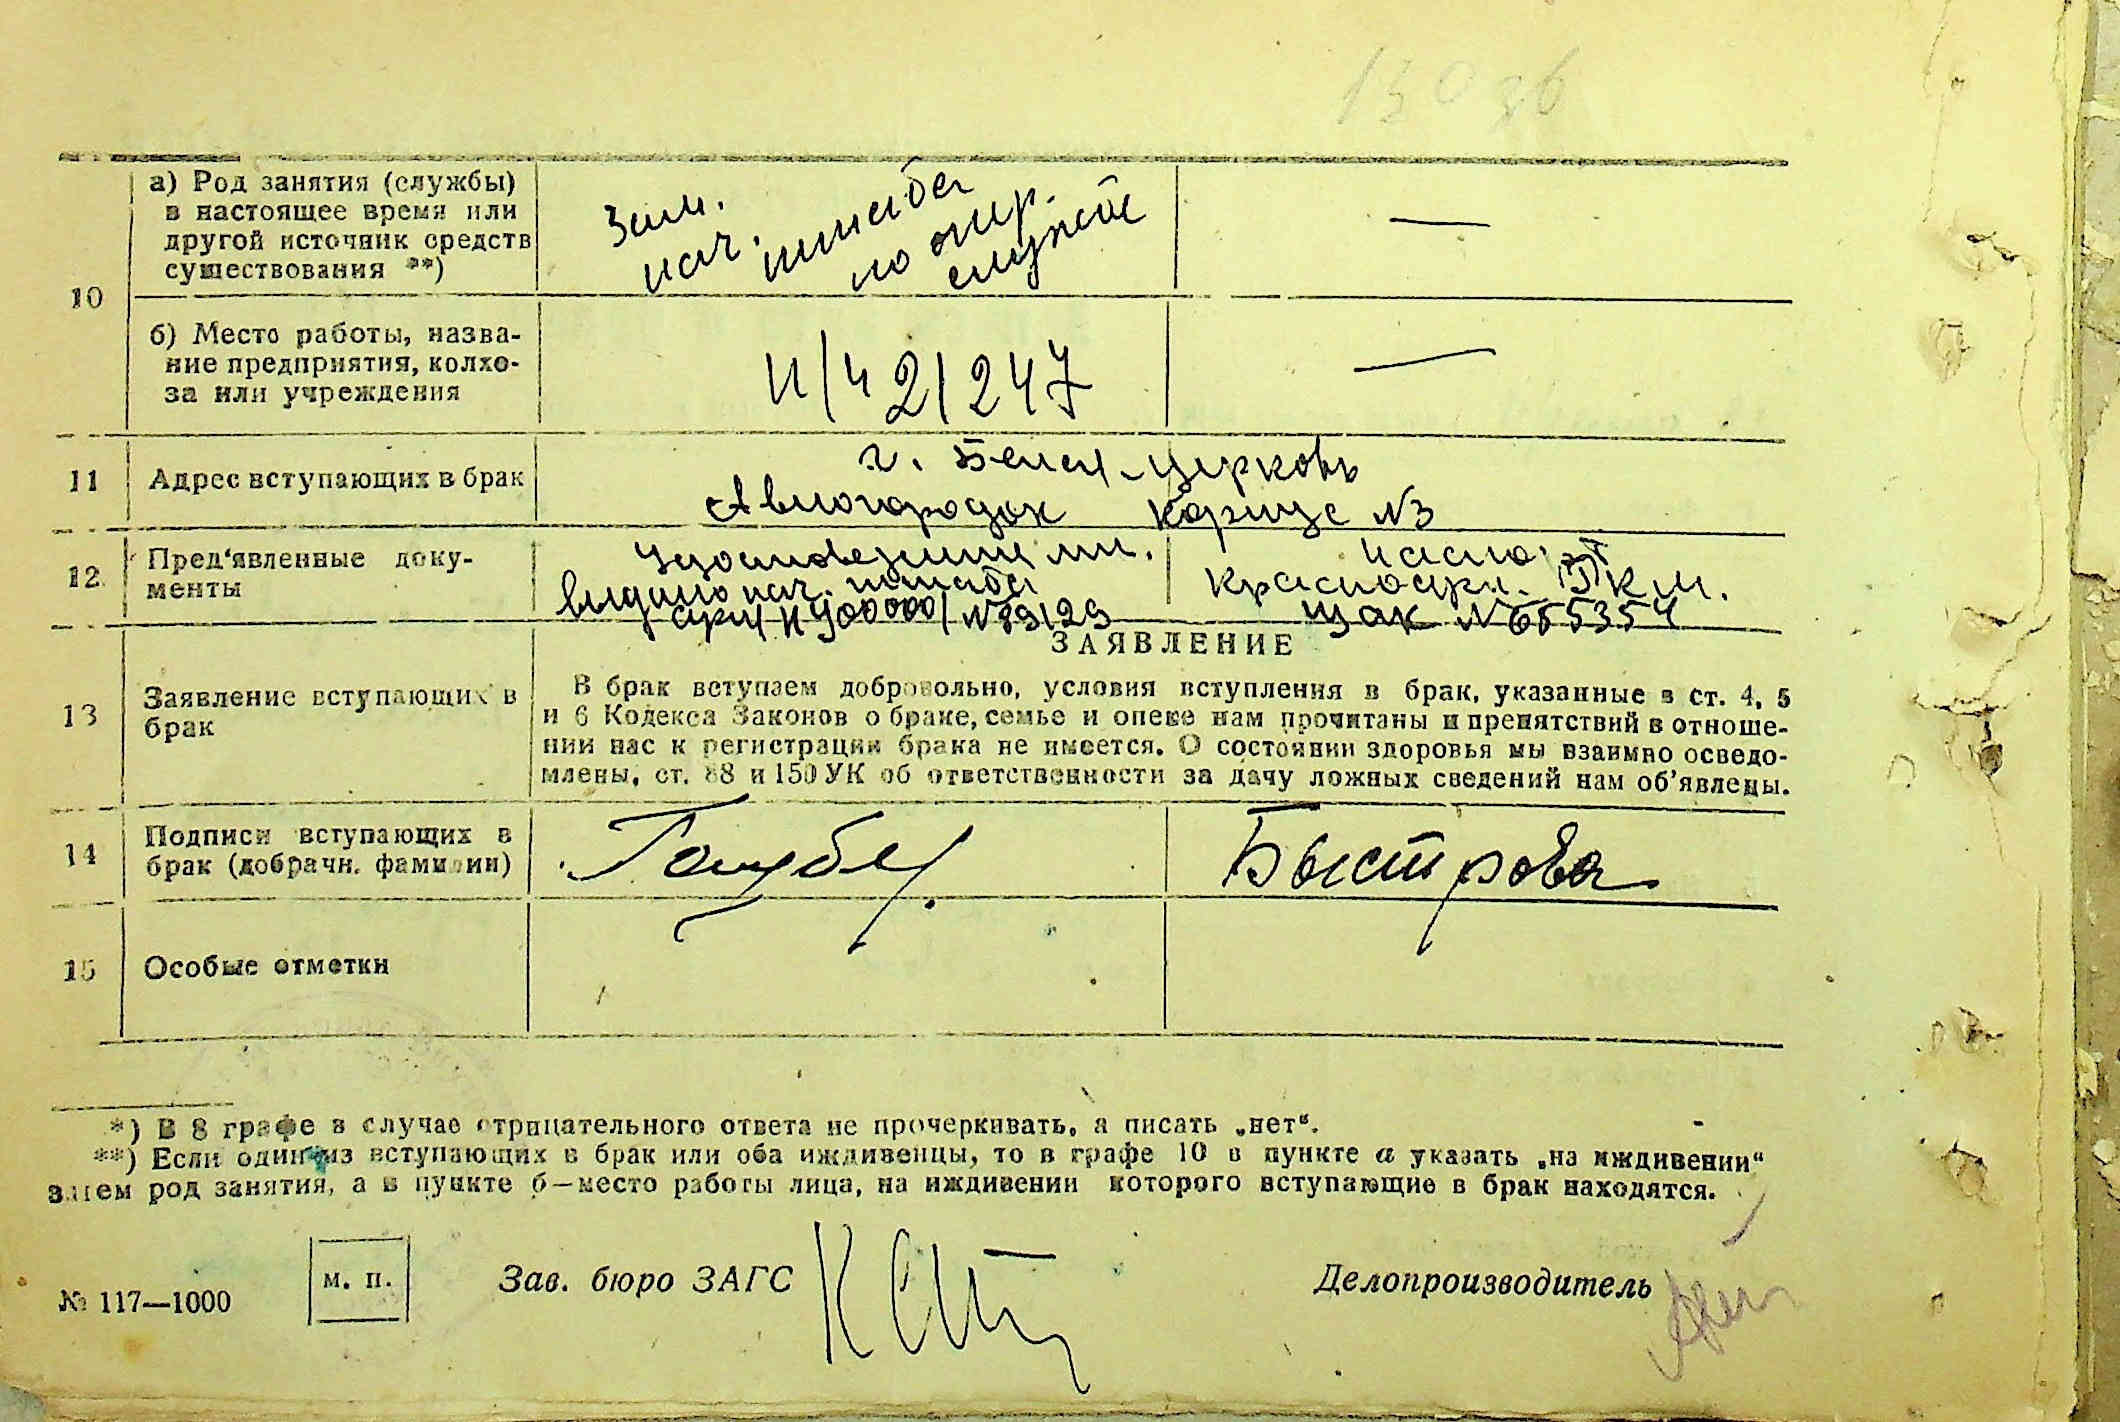 130 зв
10
а) Род занятия (службы)
в настоящее время или
другой источник средств
существования **)
Зам.
нач. штаба
по опер.
службе
—
б) Место работы, назва-
ние предприятия, колхо-
за или учреждения
И/ч 21247
—
11
Адрес вступающих в брак
г. Белая-Церковь
Авиогородок Корпус №3
12
Пред'явленные доку-
менты
Удостоверение
выдано нач. штаба
№ 89129
Красноарм. РК М.
№ 655354
13
Заявление вступающих в
брак
ЗАЯВЛЕНИЕ
В брак вступаем добровольно, условия вступления в брак, указанные в ст. 4, 5
и 6 Кодекса Законов о браке, семье и опеке нам прочитаны и препятствий в отноше-
нии нас к регистрации брака не имеется. О состоянии здоровья мы взаимно осведо-
млены, ст. 88 и 150 УК об ответственности за дачу ложных сведений нам об'явлены.
14
Подписи вступающих в
брак (добрачн. фамилии)
Быстрова
15
Особые отметки
*) В 8 графе в случае отрицательного ответа не прочеркивать, а писать „нет“.
**) Если один из вступающих в брак или оба иждивенцы, то в графе 10 в пункте а указать „на иждивении“
затем род занятия, а в пункте б—место работы лица, на иждивении которого вступающие в брак находятся.
№ 117—1000
м. п.
Зав. бюро ЗАГС
Делопроизводитель